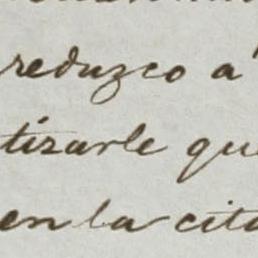 reduzco á
tizarle que
en la cita